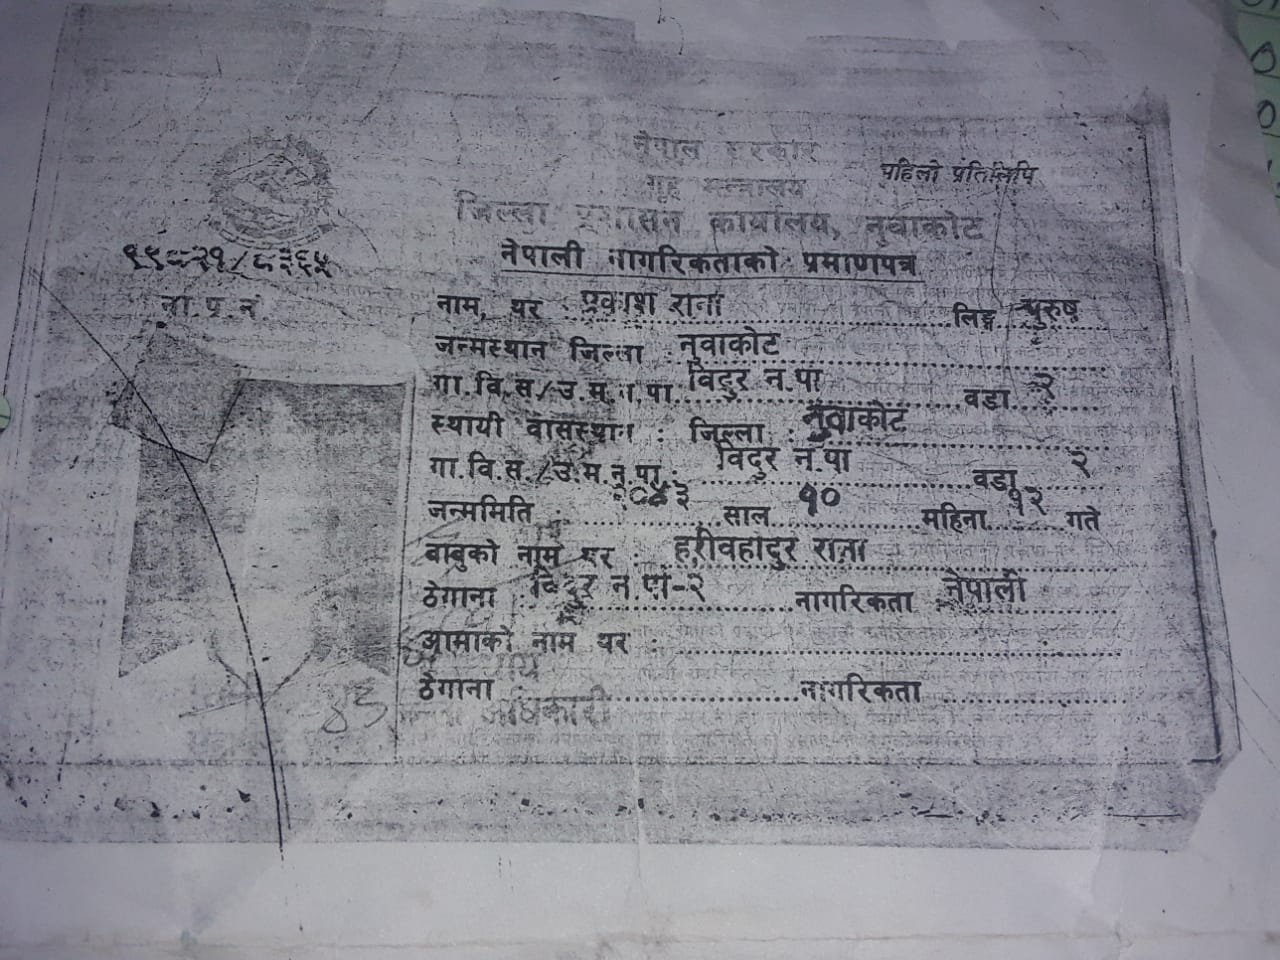 नेपाल सरकार
गृह मन्त्रालय
पहिलो प्रतिलिपि
जिल्ला प्रशासन कार्यालय, नुवाकोट
नेपाली नागरिकताको प्रमाणपत्र
ना.प.नं.
नाम, थर : प्रकाश राना लिङ्ग पुरुष
जन्मस्थान जिल्ला : नुवाकोट
गा.वि.स./उ.म.न.पा. विदुर न.पा वडा २
स्थायी वासस्थान : जिल्ला : नुवाकोट
गा.वि.स./उ.म.न.पा. : विदुर न.पा वडा २
जन्ममिति : २०४३ साल १० महिना १२ गते
बाबुको नाम थर : हरीवहादुर राना
ठेगाना : विदुर न.पा-२ नागरिकता नेपाली
आमाको नाम थर :
ठेगाना : नागरिकता
अधिकारी